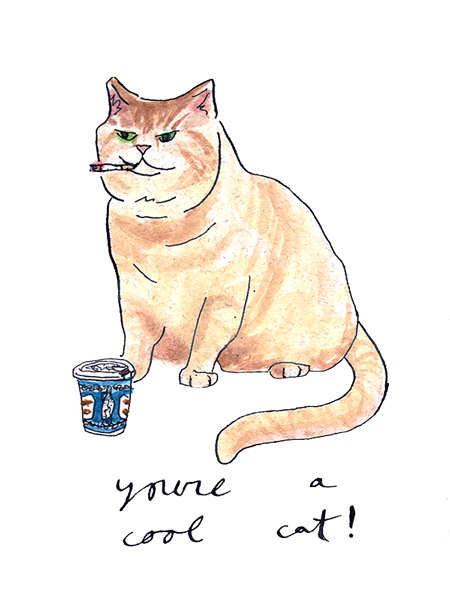 youre a
cool cat!